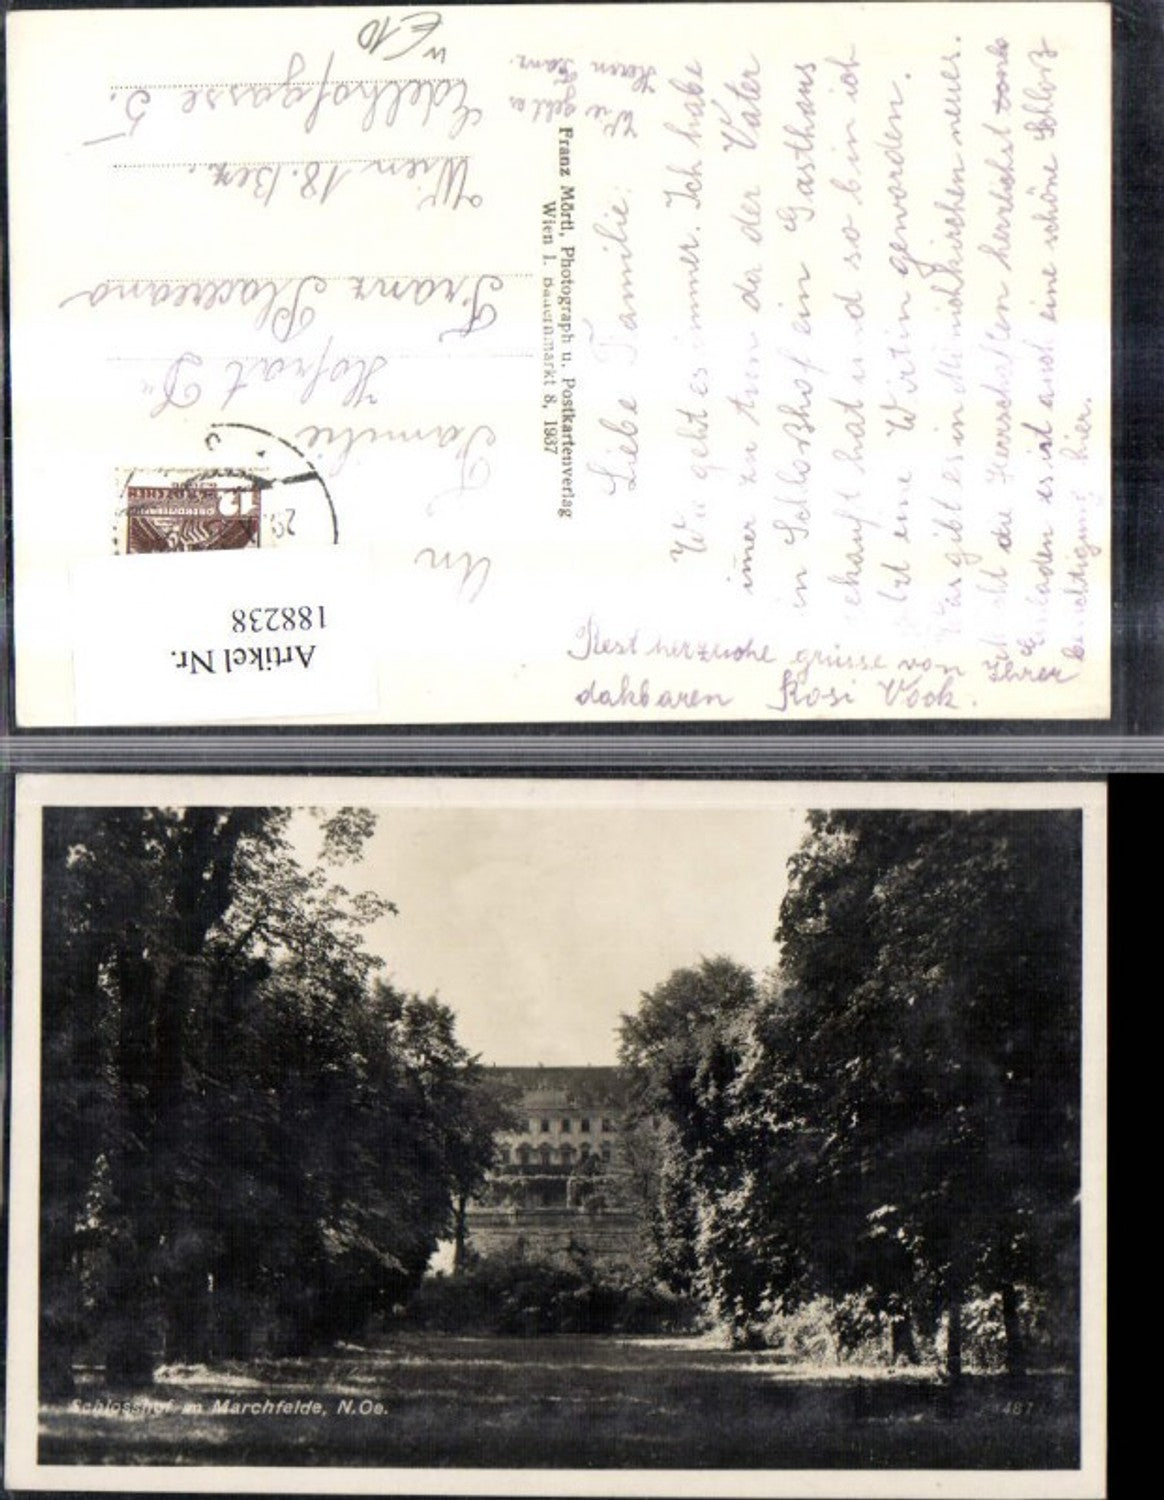 Liebe Familie:
Wie geht es immer. Ich habe
imer zu tun da der Vater
in Schloßhof ein Gasthaus
kauft hat und so bin ich
eine Wirtin geworden.
gibt es in Münichkirchen neues.
die Herrschaften herrlichst
ist auch eine schöne Schloß
hier.
Rest herzliche grüsse von Ihrer
dakbaren Rosi Vock.
Wie geht es
Herrn Franz.
Franz Mörtl, Photograph u. Postkartenverlag
Wien I. Bauernmarkt 8, 1937
An
Familie
Hofrat Dr
Franz
Wien 18. Bez.
Edelhofgasse 5.
€10
12
29.
Artikel Nr.
188238
Schlosshof im Marchfelde, N.Oe.
487